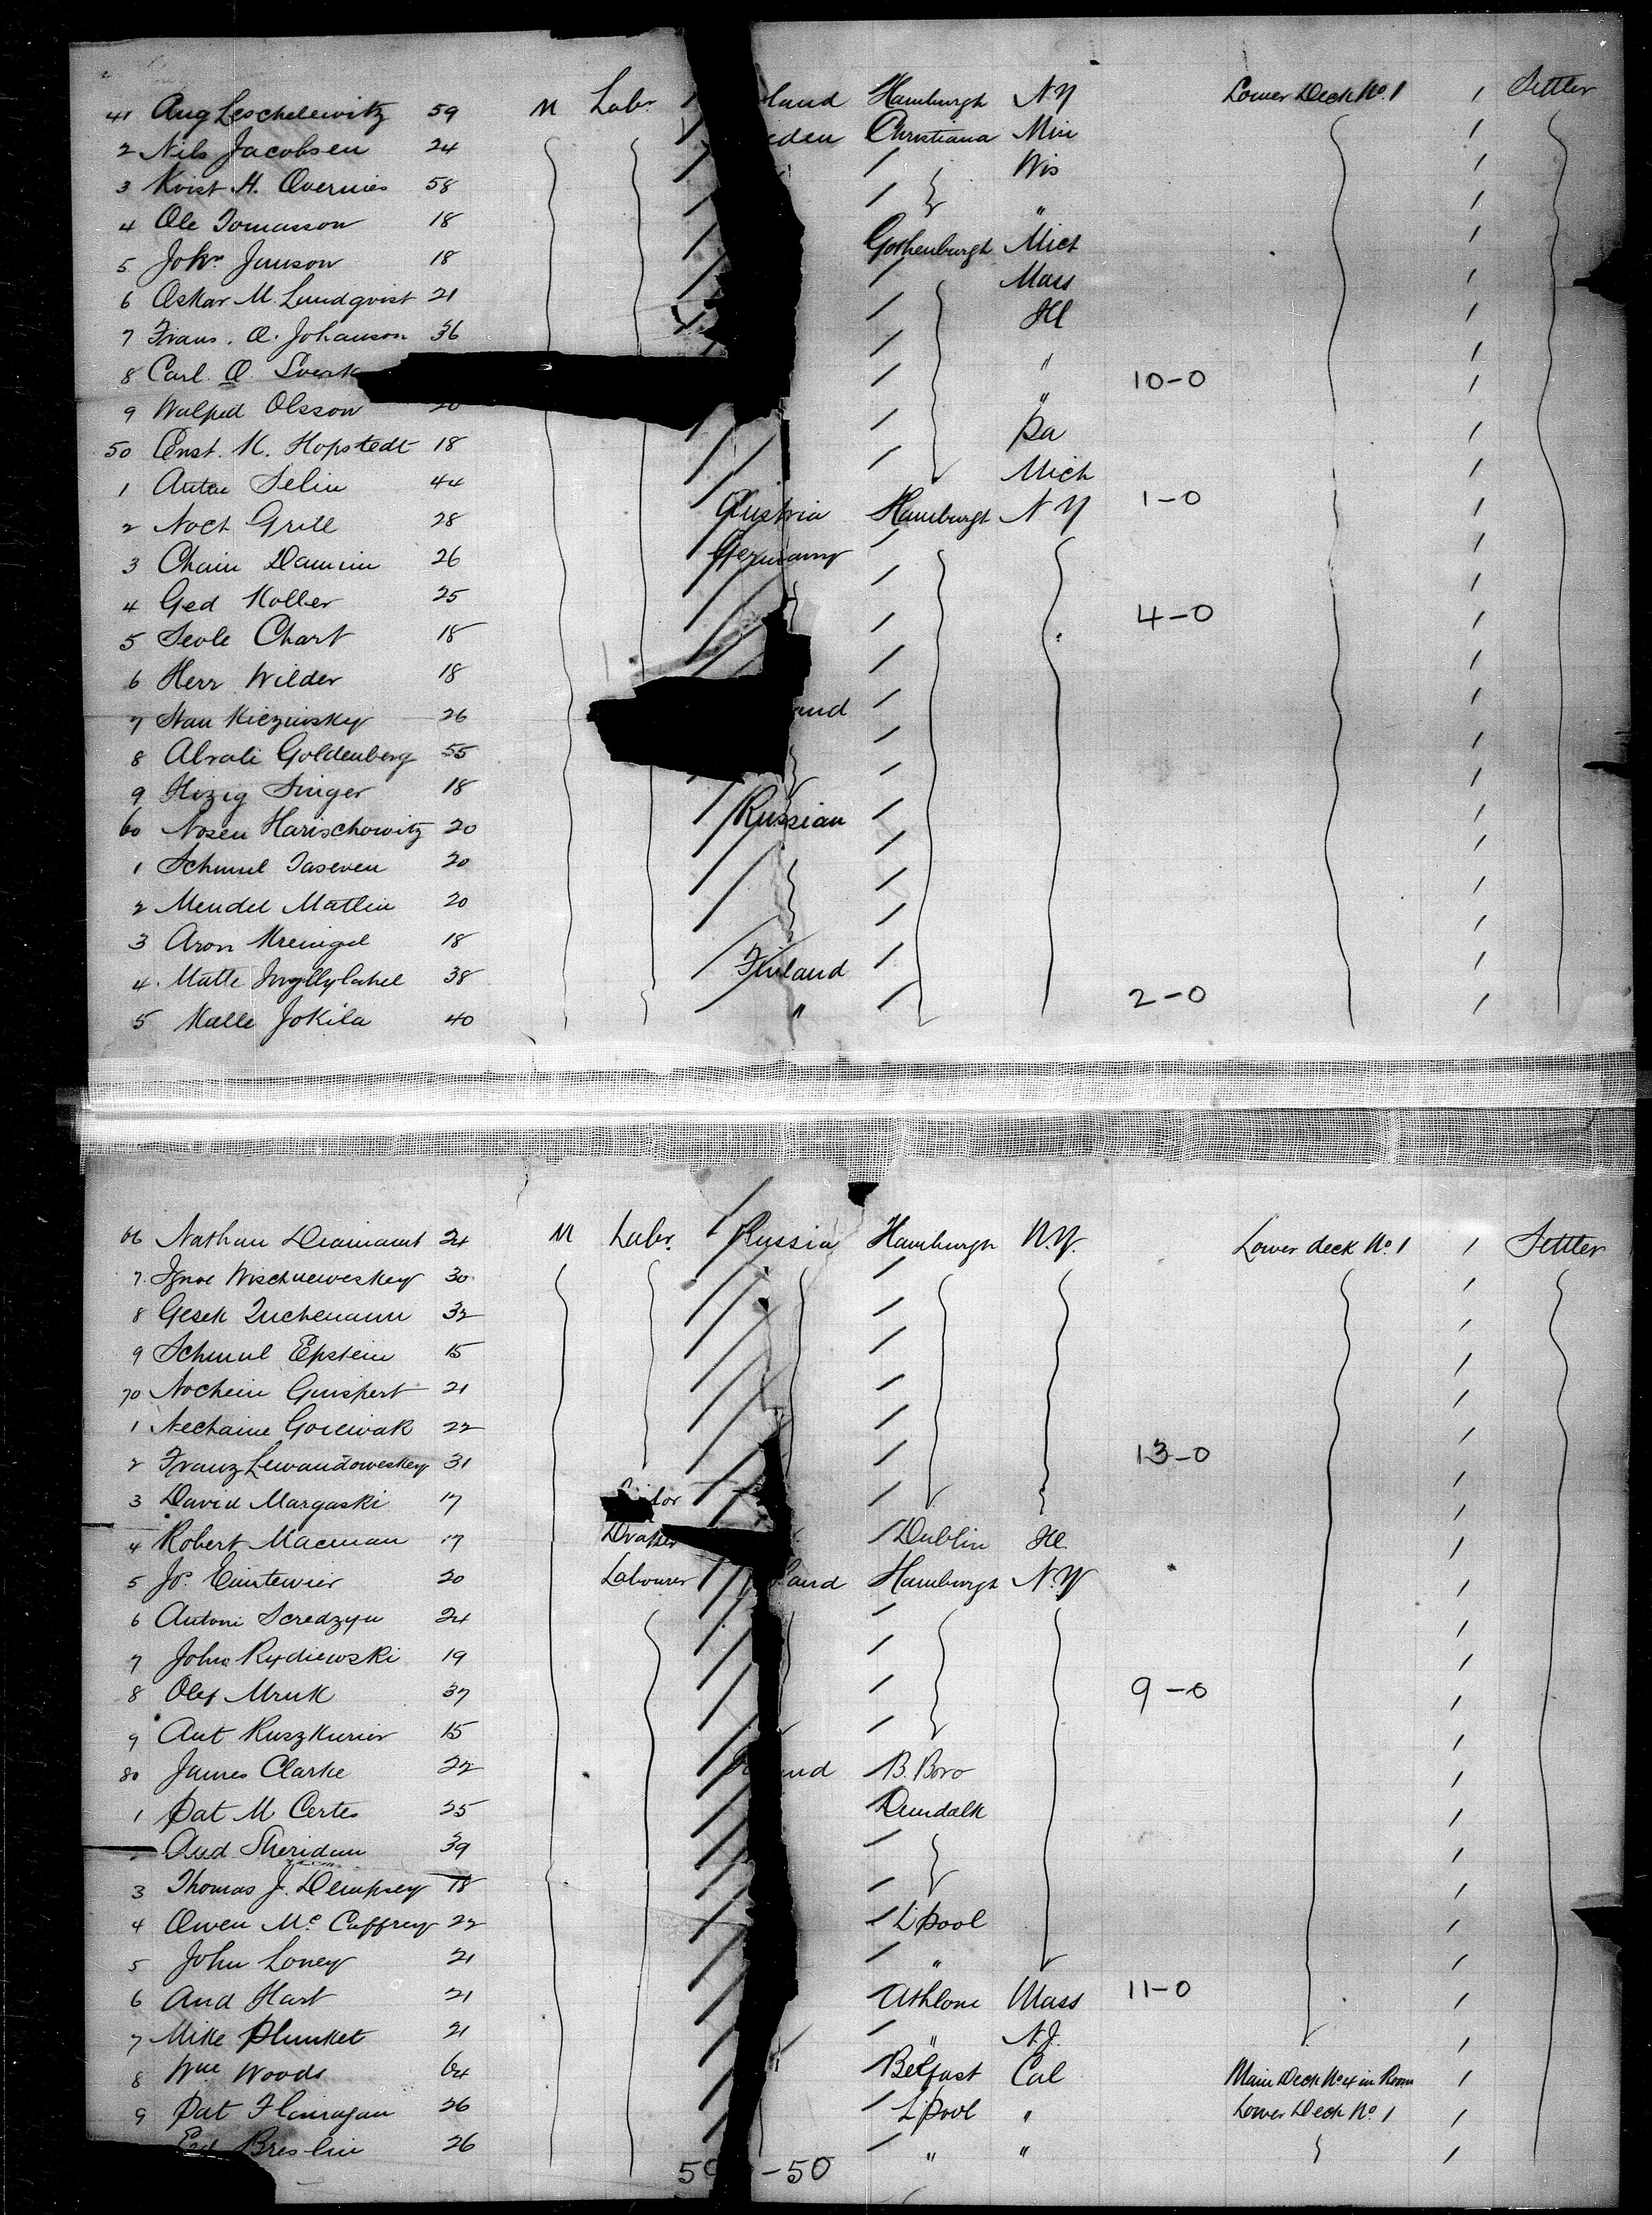 41 Aug Leschelewitz 59 M Labr. land Hamburgh N.Y Lower Deck No. 1 / Settler
2 Nils Jacobsen 24 eden Christiana Min /
3 Krist H. 58 / Wis /
4 Ole Tomasson 18 / " /
5 Johs. Janson 18 Gothenburgh Mich /
6 Oskar M. Lundqvist 21 / Mass /
7 Frans. O. Johanson 36 / Ill /
8 Carl. O. / " 10-0 /
9 Olsson 20 / " /
50 Ernst. K. Hopstedt 18 / Pa /
1 Selin 44 / Mich /
2 Noch Grill 28 Austria Hamburgh N Y 1-0 /
3 Chaim Damin 26 Germany / /
4 Ged Koller 25 / 4-0 /
5 Seole Chart 18 / /
6 Herr Wilder 18 / /
7 Stan Kiezinsky 26 and / /
8 Abrali Goldenberg 55 / /
9 Hizig Singer 18 / /
60 Nosen Harischowitz 20 Russian / /
1 Schmul Taseven 20 / /
2 Mendel Matlin 20 / /
3 Aron Kreingel 18 / /
4 Matte 38 Finland / /
5 Kalle Jokila 40 " / 2-0 /
66 Nathan Diamant 24 M Labr. Russia Hamburgh N.Y. Lower deck No 1 / Settler
7 Wischneweskey 30 / /
8 Gesek Tuchemann 32 / /
9 Schmul Epstein 15 / /
70 Nochem Guispert 21 / /
1 Nechaine Goreivak 22 / /
2 Franz Lewandoweskey 31 / 13-0 /
3 David Margaski 17 / /
4 Robert Macman 17 Draper / Dublin Ill. /
5 Jos. 20 Labourer land Hamburgh N.Y /
6 Antoni Scredzyn 24 / /
7 John Rydiewski 19 / /
8 Olef Mruk 37 / 9-0 /
9 Ant 15 / /
80 James Clarke 22 and B. Boro /
1 Pat M Certes 25 Dundalk /
And Sheridan 39 / /
3 Thomas J. Dempsey 18 / /
4 Owen Mc Caffrey 22 / L'pool /
5 John Loney 21 / " /
6 And Hart 21 Athlone Mass 11-0 /
7 Mike Plunket 21 / " N.J. /
8 Wm Woods 64 / Belfast Cal Main Deck No 4 in Room /
9 Pat Flanagan 26 / L'pool " Lower Deck No. 1 /
Ed Breslin 26 / " " /
-50